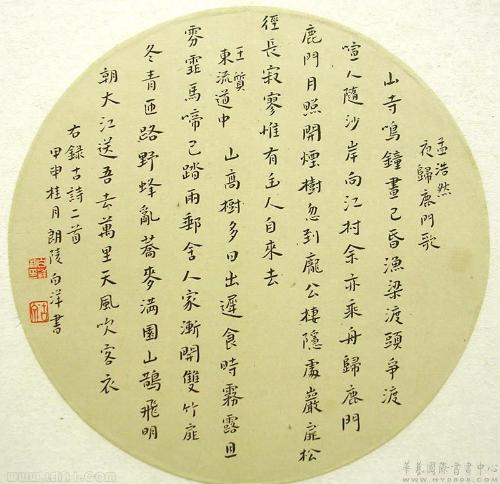 孟浩然
夜歸鹿門歌
山寺鳴鐘晝已昏漁梁渡頭爭渡
喧人隨沙岸向江村余亦乘舟歸鹿門
鹿門月照開煙樹忽到龐公棲隱處巖扉松
徑長寂寥惟有人自來去
王質
東流道中 山高樹多日出遲食時霧露且
雰霏馬啼已踏兩郵舍人家漸開雙竹扉
冬青匝路野蜂亂蕎麥滿園山鵲飛明
朝大江送吾去萬里天風吹客衣
右錄古詩二首
甲申桂月朗陵向洋書
華藝國際書畫中心